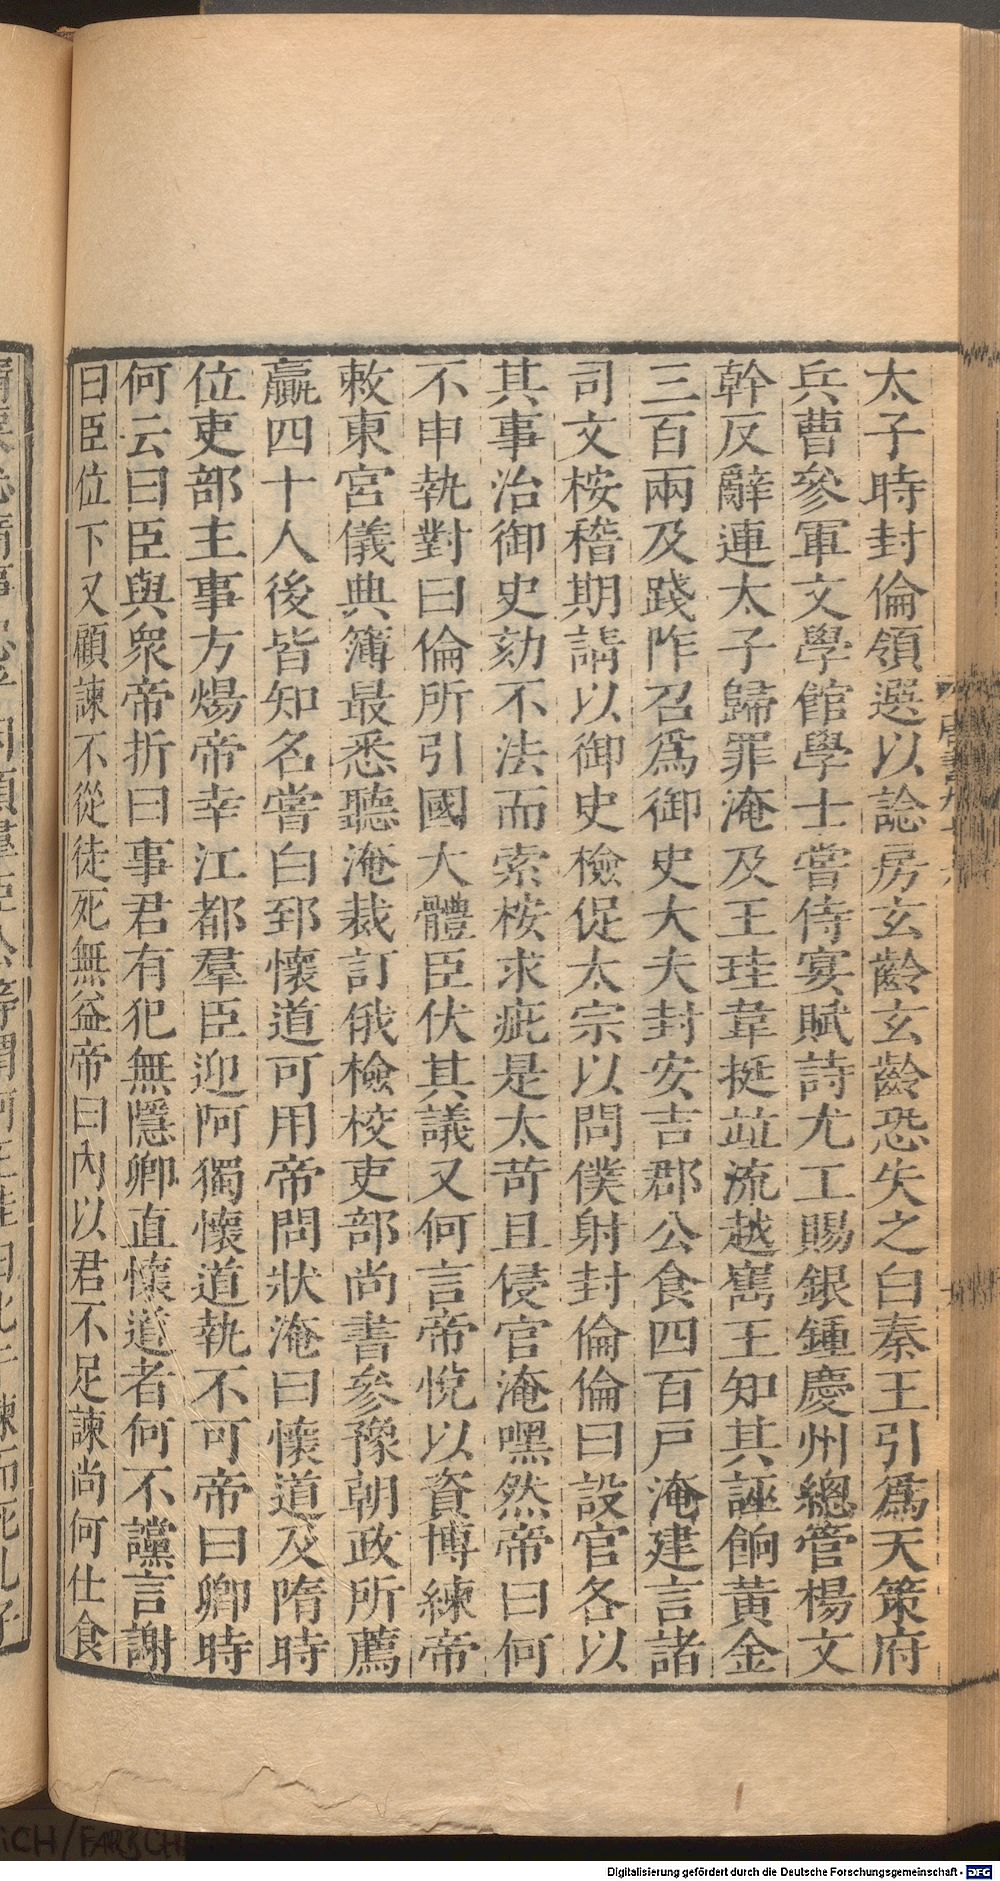 太子時封倫領選以諗房玄齡玄齡恐失之白秦王引爲天策府
兵曹參軍文學館學士嘗侍宴賦詩尤工賜銀鍾慶州總管楊文
幹反辭連太子歸罪淹及王珪韋挺竝流越巂王知其誣餉黃金
三百兩及踐阼召爲御史大夫封安吉郡公食四百戶淹建言諸
司文桉稽期請以御史檢促太宗以問僕射封倫倫曰設官各以
其事治御史劾不法而索桉求疵是太苛且侵官淹嘿然帝曰何
不申執對曰倫所引國大體臣伏其議又何言帝悅以資博練帝
敕東宮儀典簿最悉聽淹裁訂俄檢校吏部尚書參豫朝政所薦
贏四十人後皆知名嘗白郅懷道可用帝問狀淹曰懷道及隋時
位吏部主事方煬帝幸江都羣臣迎阿獨懷道執不可帝曰卿時
何云曰臣與眾帝折曰事君有犯無隱卿直懷道者何不讜言謝
曰臣位下又顧諫不從徒死無益帝曰內以君不足諫尚何仕食
Digitalisierung gefördert durch die Deutsche Forschungsgemeinschaft - DFG